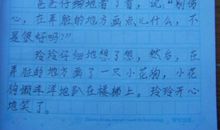 爸爸仔细地看了看，说："别伤
心，在弄脏的地方画点儿什么，不
是很好吗？"
玲玲仔细地想了想，然后，在
弄脏的地方画了一只小花狗，小花
狗懒洋洋地趴在楼梯上。玲玲开心
地笑了。